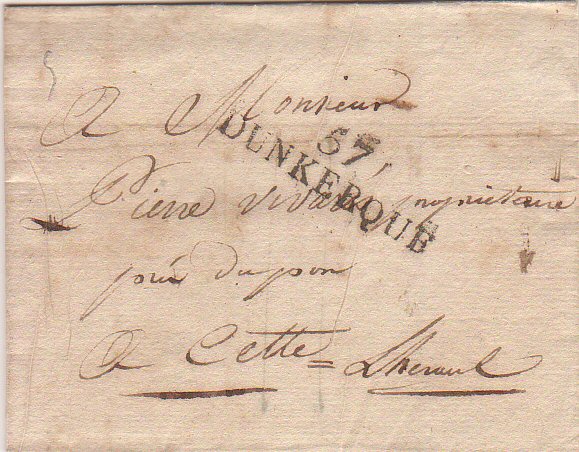 A Monsieur
57,
DUNKERQUE
Pierre vivarès propriétaire
près du pon
A Cette = Lherault